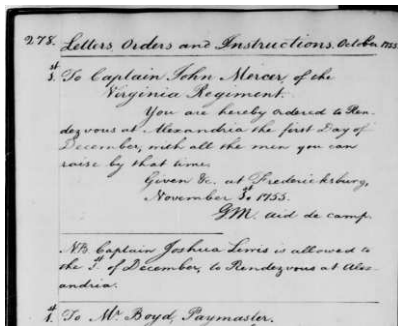 278. Letters, Orders and Instructions. October 1755.
st
1. To Captain John Mercer, of the
Virginia Regiment.
You are hereby ordered to Ren-
dezvous at Alexandria the first Day of
December, with all the men you can
raise by that time.
Given &c. at Fredericksburg,
November 1st 1755.
G.M. aid de camp.
NB. Captain Joshua Lewis is allowed to
the of December, to Rendezvous at Alex-
andria.
st
1. To Mr Boyd, Paymaster.